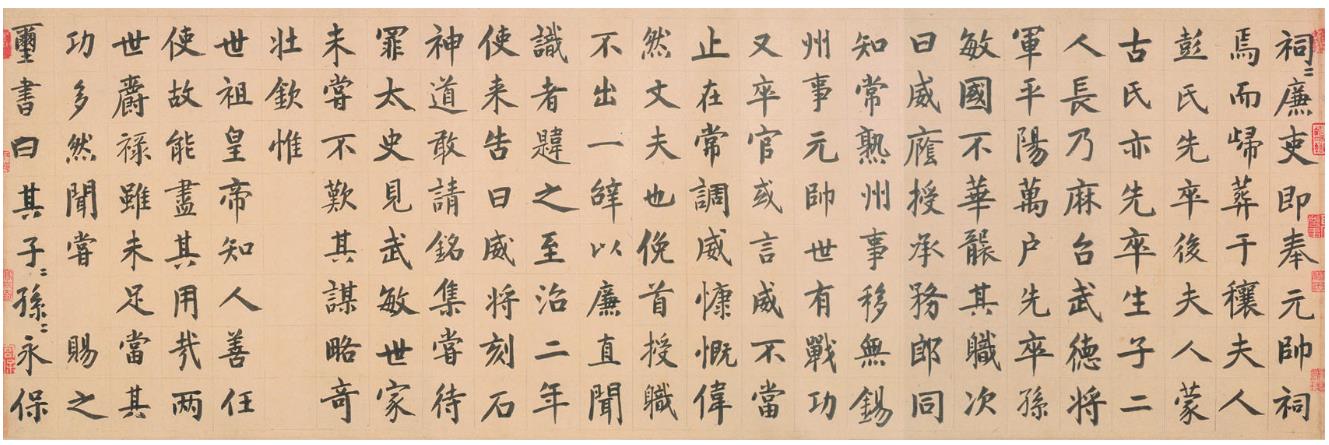 祠〻廡吏即奉元帥祠
焉而歸葬于穰夫人
彭氏先卒後夫人蒙
古氏亦先卒生子二
人長乃麻台武德將
軍平陽萬户先卒孫
敏國不華襲其職次
曰威䧹授承務郎同
知常熟州事移無錫
州事元帥世有戰功
又卒官或言威不當
止在常調威慷慨偉
然文夫也俛首授職
不出一辭以廉直聞
識者韙之至治二年
使来告曰威將刻石
神道敢請銘集嘗待
罪太史見武敏世家
未嘗不歎其謀略奇
壮欽惟
世祖皇帝知人善任
使故能盡其用哉兩
世爵祿雖未足當其
功多然聞嘗賜之
璽書曰其子〻孫〻永保